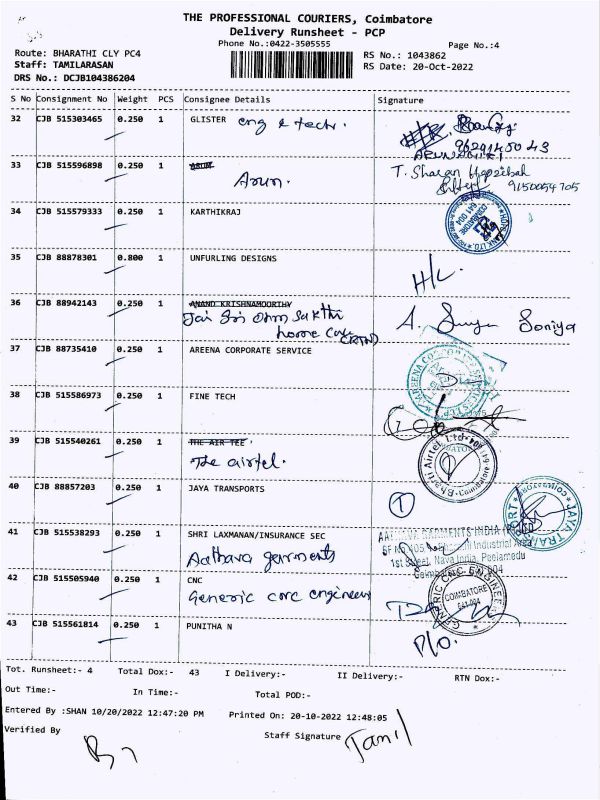 THE PROFESSIONAL COURIERS, Coimbatore
Delivery Runsheet - PCP
Phone No.:0422-3505555
Page No.:4
Route: BHARATHI CLY PC4
RS No.: 1043862
Staff: TAMILARASAN
RS Date: 20-Oct-2022
DRS No.: DCJB104386204
S No Consignment No Weight PCS Consignee Details Signature
32 CJB 515303465 0.250 1 GLISTER eng & tech.
9629145043
33 CJB 515596898 0.250 1 ARUN
Arun.
T. Sharan Hepzibah
9150054705
34 CJB 515579333 0.250 1 KARTHIKRAJ
COIMBATORE
641 004
35 CJB 88878301 0.800 1 UNFURLING DESIGNS
H/L
36 CJB 88942143 0.250 1 ANAND KRISHNAMOORTHY
Jai Sri Ohm Sakthi
home care
Soniya
37 CJB 88735410 0.250 1 AREENA CORPORATE SERVICE
38 CJB 515586973 0.250 1 FINE TECH
39 CJB 515540261 0.250 1 THE AIR TEE
The airtel.
Bharti Airtel Ltd
40 CJB 88857203 0.250 1 JAYA TRANSPORTS
1
JAYA TRANSPORT
41 CJB 515538293 0.250 1 SHRI LAXMANAN/INSURANCE SEC
Aathava garments
GARMENTS INDIA
Industrial Area
1st Street, Nava India, Peelamedu
42 CJB 515505940 0.250 1 CNC
Generic cnc engineer
GENERIC CNC ENGINEER
COIMBATORE
641 004
43 CJB 515561814 0.250 1 PUNITHA N
P/O.
Tot. Runsheet:- 4 Total Dox:- 43 I Delivery:- II Delivery:- RTN Dox:-
Out Time:- In Time:- Total POD:-
Entered By :SHAN 10/20/2022 12:47:20 PM Printed On: 20-10-2022 12:48:05
Verified By
Staff Signature Tamil